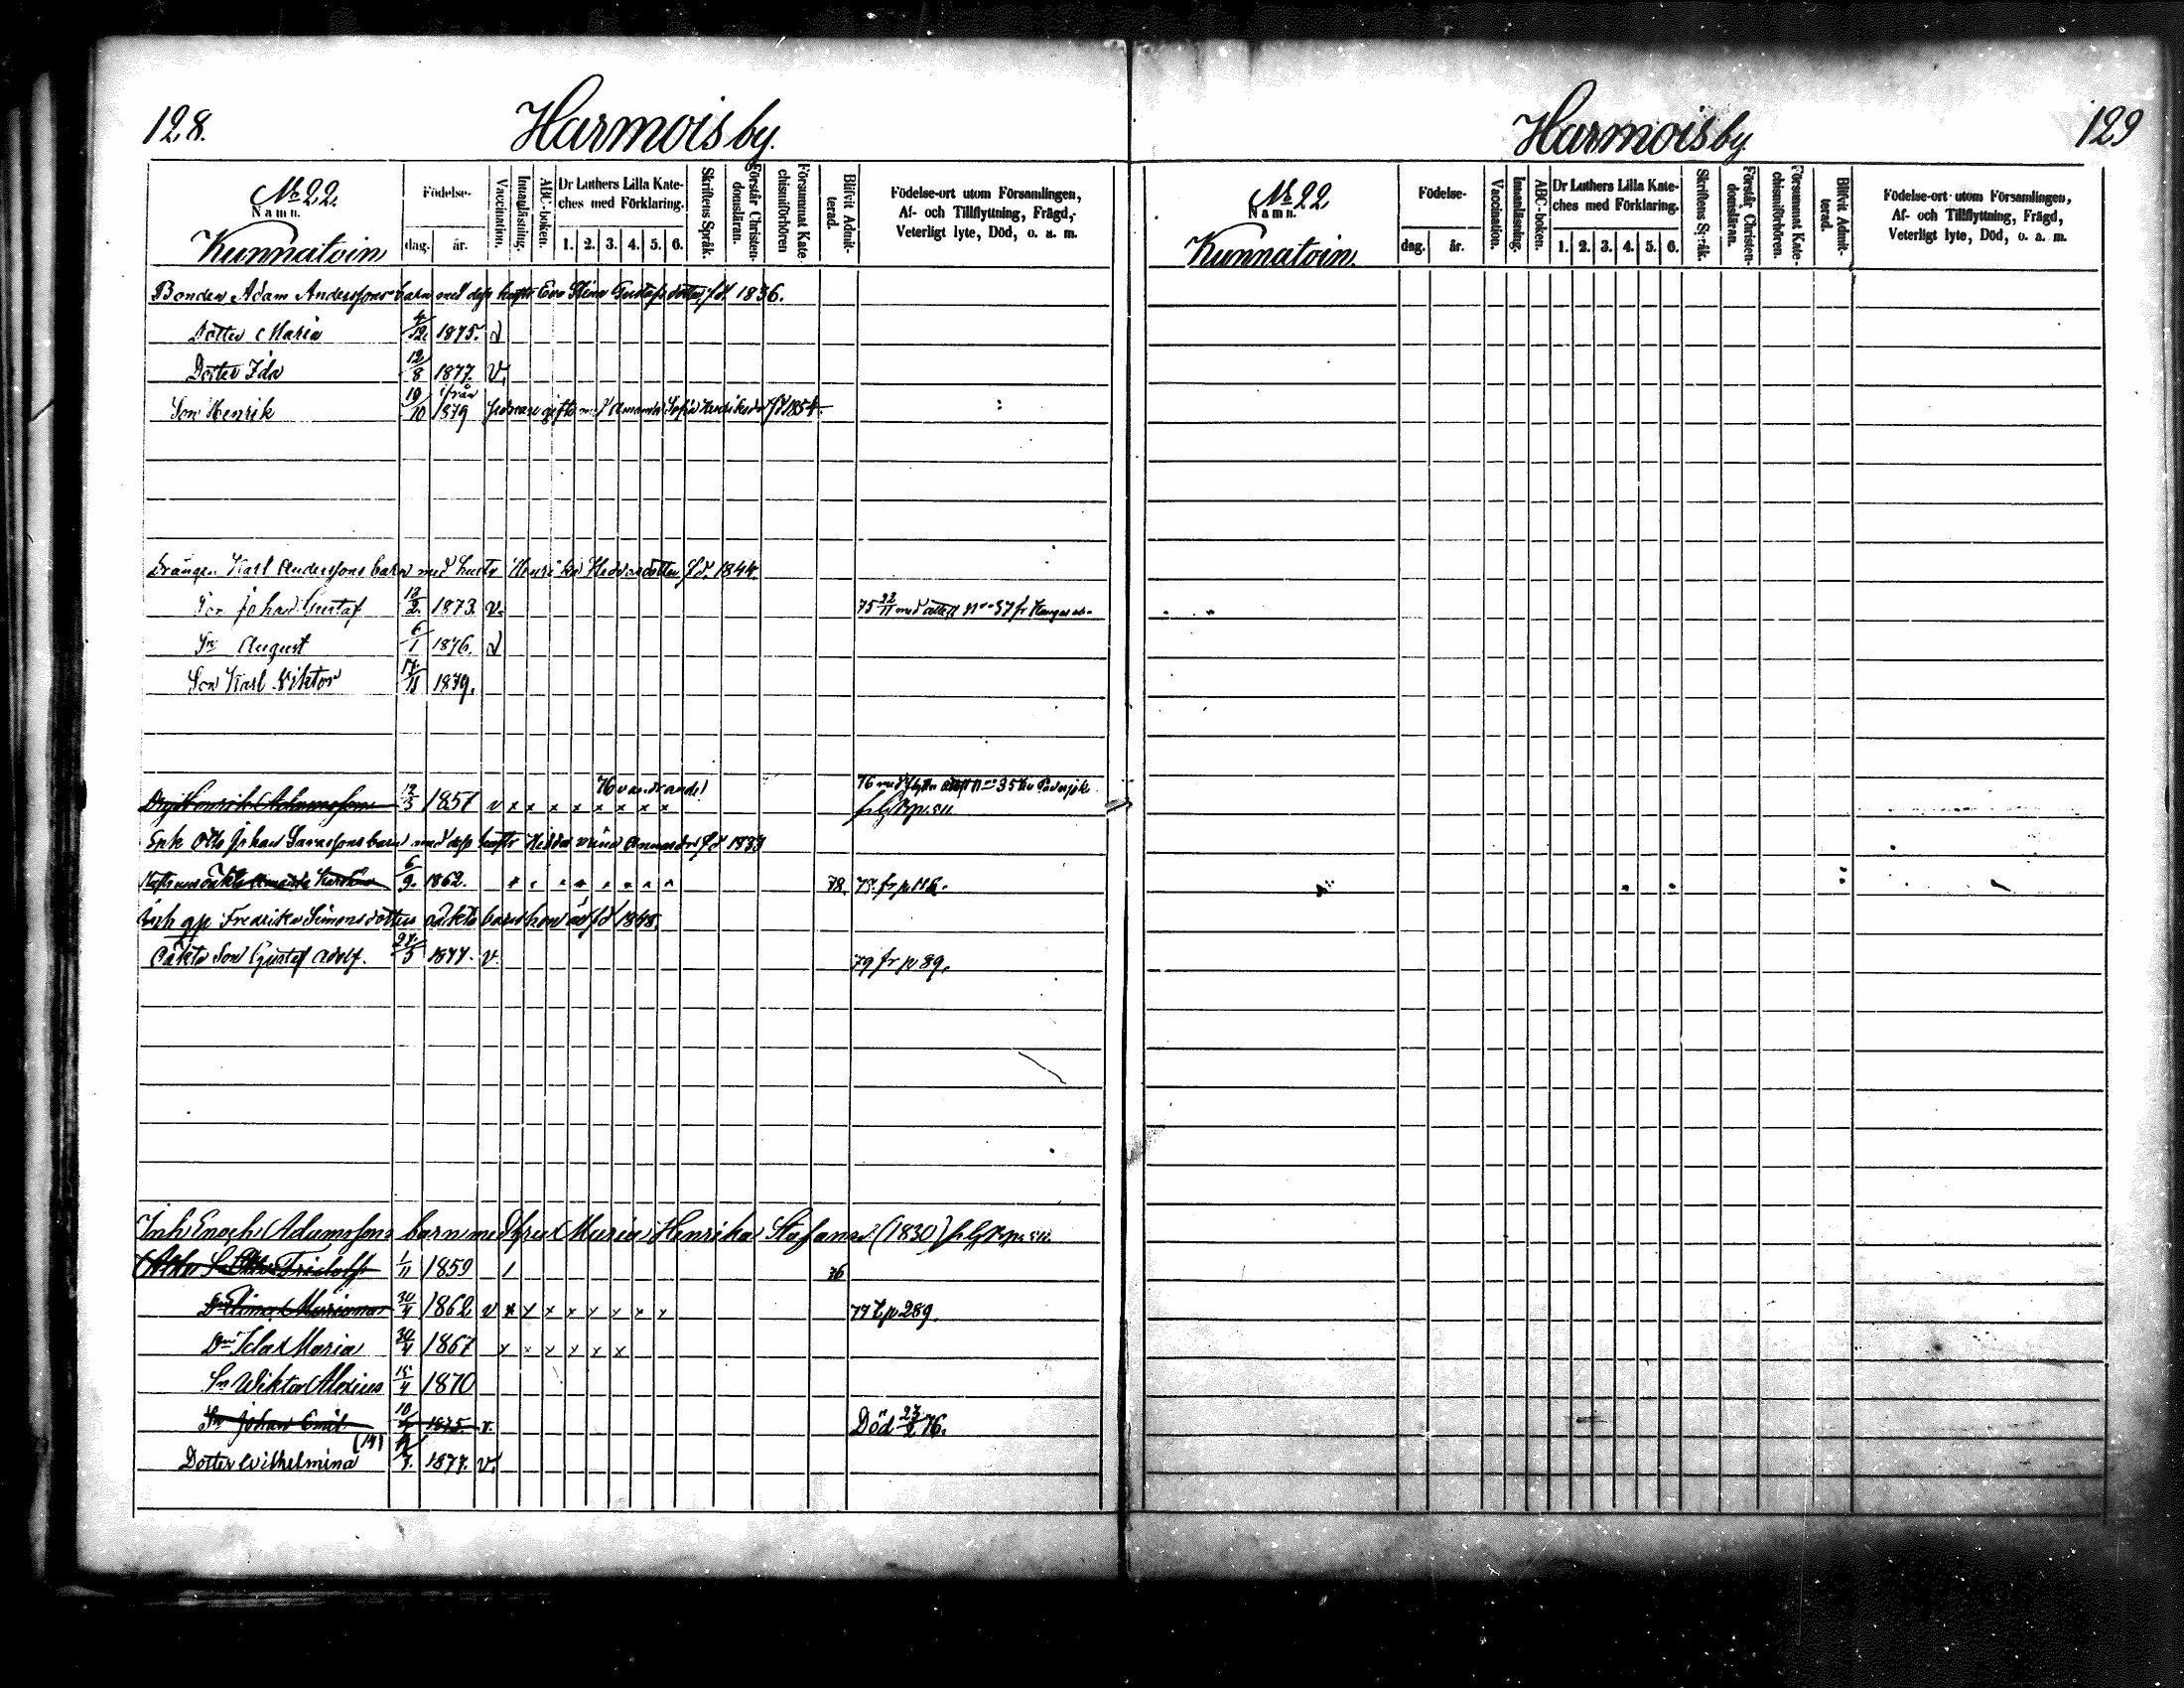 128.
Harmois by.
No 22.
Namn.
Kunnatoin
Födelse-
dag. år.
Vaccination.
Innanläsning.
ABC-boken.
Dr Luthers Lilla Kate-
ches med Förklaring.
1. 2. 3. 4. 5. 6.
Skriftens Språk.
Förstår Christen-
domsläran.
Försummat Kate-
chismiförhören
Blifvit Admit-
terad.
Födelse-ort utom Församlingen,
Af- och Tillflyttning, Frägd,
Veterligt lyte, Död, o. a. m.
Bonden Adam Anderssons barn med dess hustr Eva Stina Gustafsdotter, fd. 1836.
Dotter Maria 4/12 1875. v
Dotter Ida 12/8 1877. v.
Son Henrik 19/10 1879 från gifte m Amanda Sofia Henriksdr fd 1854
Drängen Karl Anderssons barn med hustr Henrika Heddasdotter fd. 1844.
Son Johan Gustaf 12/2. 1873. v. 75 22/11 med attest No 57 fr
Sn August 6/1 1876. v
Son Karl Viktor 11 1879.
76 vandrande!
Drg Henrik Adamsson 12/3 1857 v x x x x x x x x 76 med attest No 35
Enk Otto Johan barn med dess hustr Hedda fd 1833
oäkta Amanda Karolina 6/9. 1862. 78.
Inh qp Fredrika Simonsdotters oäkta barn hon är fd 1848.
Oäkta Son Gustaf Adolf. 24/5 1877. v. 79 fr p 89.
Inh Enoch Adamssons barn med hust Maria Henrika Stafansd (1830)
Fridolf 1/11 1859 76
Mariana 30/4 1862 v x x x x x x x x 77 t p 289.
Dr Ida Maria 30/4 1867 x x x x x x
Sn Wiktor Alexius 15/4 1870
Sn Johan Emil 10 1875. v. Död 23/2 76.
Dotter Wilhelmina (19) 1877. v.
Harmois by
129
No 22
Namn.
Kunnatoin.
Födelse-
dag. år.
Vaccination.
Innanläsning.
ABC-boken.
Dr Luthers Lilla Kate-
ches med Förklaring.
1. 2. 3. 4. 5. 6.
Skriftens Språk.
Förstår Christen-
domsläran.
Försummat Kate-
chismiförhören.
Blifvit Admit-
terad.
Födelse-ort utom Församlingen,
Af- och Tillflyttning, Frägd,
Veterligt lyte, Död, o. a. m.